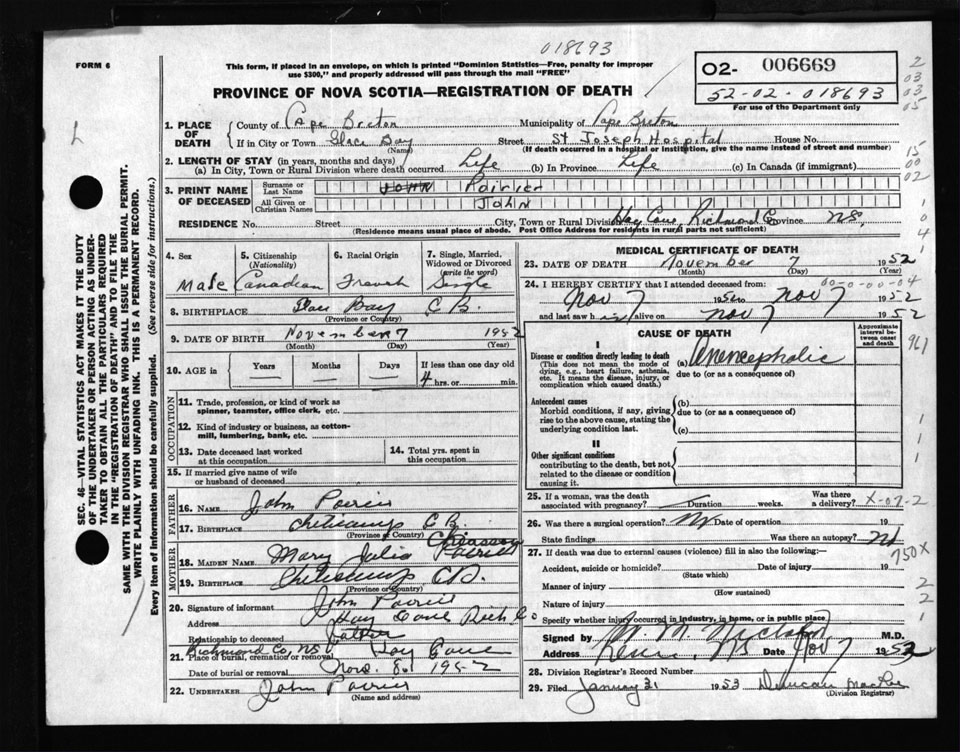 018693
FORM 6
This form, if placed in an envelope, on which is printed "Dominion Statistics—Free, penalty for improper
use $300," and properly addressed will pass through the mail "FREE"
O2- 006669
52-02-018693
For use of the Department only
PROVINCE OF NOVA SCOTIA—REGISTRATION OF DEATH
2
03
03
05
15
00
02
1
0
4
1. PLACE OF DEATH { County of Cape Breton Municipality of Cape Breton
If in City or Town Glace Bay Street St Joseph Hospital House No.
(Name) (If death occurred in a hospital or institution, give the name instead of street and number)
2. LENGTH OF STAY (in years, months and days)
(a) In City, Town or Rural Division where death occurred Life (b) In Province Life (c) In Canada (if immigrant)
3. PRINT NAME OF DECEASED { Surname or Last Name JOHN Poirier
All Given or Christian Names JOHN
RESIDENCE No. Street City, Town or Rural Division Hay Cove, Richmond Co Province NS,
(Residence means usual place of abode. Post Office Address for residents in rural parts not sufficient)
SEC. 46—VITAL STATISTICS ACT MAKES IT THE DUTY
OF THE UNDERTAKER OR PERSON ACTING AS UNDER-
TAKER TO OBTAIN ALL THE PARTICULARS REQUIRED
IN THE "REGISTRATION OF DEATH" AND TO FILE THE
SAME WITH THE DIVISION REGISTRAR WHO SHALL ISSUE THE BURIAL PERMIT.
WRITE PLAINLY WITH UNFADING INK. THIS IS A PERMANENT RECORD.
Every item of information should be carefully supplied. (See reverse side for instructions.)
4. Sex
Male
5. Citizenship (Nationality)
Canadian
6. Racial Origin
French
7. Single, Married, Widowed or Divorced (write the word)
Single
8. BIRTHPLACE Glace Bay C B.
(Province or Country)
9. DATE OF BIRTH November 7 1952
(Month) (Day) (Year)
10. AGE in Years Months Days If less than one day old
4 hrs. or min.
OCCUPATION
11. Trade, profession, or kind of work as
spinner, teamster, office clerk, etc.
12. Kind of industry or business, as cotton-
mill, lumbering, bank, etc.
13. Date deceased last worked
at this occupation
14. Total yrs. spent in
this occupation
15. If married give name of wife
or husband of deceased
FATHER
16. Name John Poirier
17. BIRTHPLACE Cheticamp C B.
(Province or Country)
MOTHER
Chiasson
18. MAIDEN NAME Mary Julia Poirier
19. BIRTHPLACE Cheticamp C.B.
(Province or Country)
20. Signature of informant John Poirier
Address Hay Cove Rich Co
Relationship to deceased Father
Richmond Co, NS Hay Cove
21. Place of burial, cremation or removal
Date of burial or removal Nov. 8. 1952
22. UNDERTAKER John Poirier
(Name and address)
MEDICAL CERTIFICATE OF DEATH
23. DATE OF DEATH November 7 1952
(Month) (Day) (Year)
00-0-00-04
24. I HEREBY CERTIFY that I attended deceased from:
Nov 7 1952 to Nov 7 1952
and last saw him alive on Nov 7 1952
CAUSE OF DEATH
Approximate interval between onset and death
961
I
Disease or condition directly leading to death
(This does not mean the mode of
dying, e.g., heart failure, asthenia,
etc. It means the disease, injury, or
complication which caused death.)
(a) Anencephalic
due to (or as a consequence of)
Antecedent causes
Morbid conditions, if any, giving
rise to the above cause, stating the
underlying condition last.
(b)
due to (or as a consequence of)
(c)
1
1
1
II
Other significant conditions
contributing to the death, but not
related to the disease or condition
causing it.
25. If a woman, was the death
associated with pregnancy? Duration weeks. Was there a delivery? X-07-2
26. Was there a surgical operation? No Date of operation 19
State findings Was there an autopsy? No
27. If death was due to external causes (violence) fill in also the following:—
750X
Accident, suicide or homicide? Date of injury 19
(State which)
Manner of injury 2
(How sustained)
Nature of injury 2
Specify whether injury occurred in industry, in home, or in public place
Signed by M.D.
Address NS Date Nov 7 1952
28. Division Registrar's Record Number
29. Filed January 31 1953 Duncan MacRae
(Division Registrar)